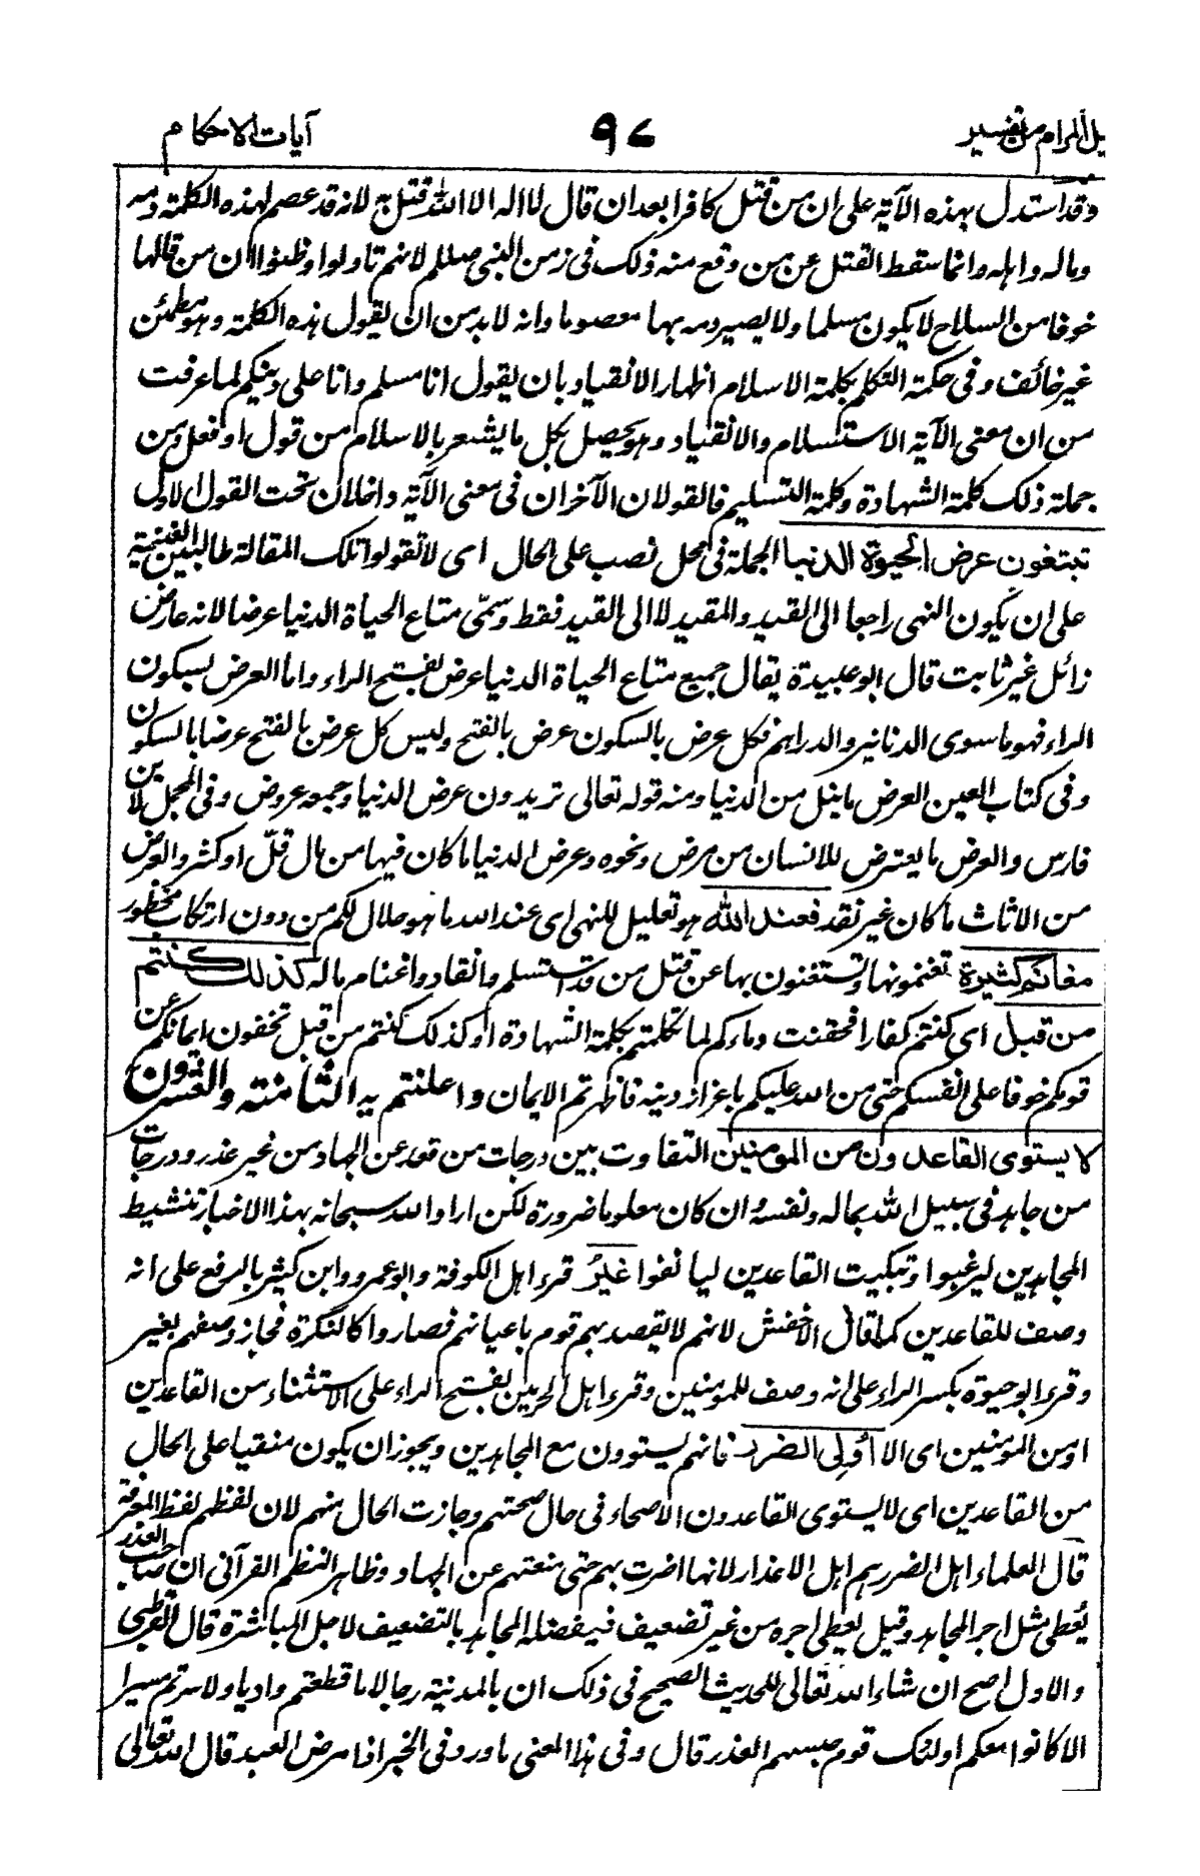 يل المرام من تفسير ٩٧ آيات الاحكام
وقد استدل بهذه الآية على ان من قتل كافرا بعد ان قال لا اله الا الله قتل به لانه قد عصم بهذه الكلمة دمه
وماله واهله وانما سقط القتل عن من وقع منه ذلك فى زمن النبى صللم لانهم تاولوا وظنوا ان من قالها
خوفا من السلاح لا يكون مسلما ولا يصير دمه بها معصوما وانه لابد من ان يقول هذه الكلمة وهو مطمئن
غير خائف وفى حكمة التكلم بكلمة الاسلام اظهار الانقياد بان يقول انا مسلم وانا على دينكم لما عرفت
من ان معنى الآية الاستسلام والانقياد وهو يحصل بكل ما يشعر بالاسلام من قول او فعل ومن
جملة ذلك كلمة الشهادة وكلمة التسليم فالقولان الآخران فى معنى الآية داخلان تحت القول الاول
تبتغون عرض الحيوة الدنيا الجملة فى محل نصب على الحال اى لا تقولوا تلك المقالة طالبين الغنيمة
على ان يكون النهى راجعا الى القيد والمقيد لا الى القيد فقط وسمّى متاع الحياة الدنيا عرضا لانه عارض
زائل غير ثابت قال ابو عبيدة يقال جميع متاع الحياة الدنيا عرض بفتح الراء واما العرض بسكون
الراء فهو ما سوى الدنانير والدراهم فكل عرض بالسكون عرض بالفتح وليس كل عرض بالفتح عرضا بالسكون
وفى كتاب العين العرض ما نيل من الدنيا ومنه قوله تعالى تريدون عرض الدنيا وجمعه عروض وفى المجمل لابن
فارس والعرض ما يعترض للانسان من مرض ونحوه وعرض الدنيا ما كان فيها من مال قلّ او كثر والعرض
من الاثاث ما كان غير نقد فعند الله هو تعليل للنهى اى عند الله ما هو حلال لكم من دون ارتكاب محظور
مغانم كثيرة تغنمونها وتستغنون بها عن قتل من قد استسلم وانقاد واغتنام ماله كذلك كنتم
من قبل اى كنتم كفارا فحقنت دماءكم لما تكلمتم بكلمة الشهادة او كذلك كنتم من قبل تخفون ايمانكم عن
قومكم خوفا على انفسكم حتى من الله عليكم باعزاز دينه فاظهرتم الايمان واعلنتم به الثامنة والعشرون
لا يستوى القاعدون من المومنين التفاوت بين درجات من قعد عن الجهاد من غير عذر ودرجات
من جاهد فى سبيل الله بماله ونفسه وان كان معلوما ضرورة لكن اراد الله سبحانه بهذا الاخبار تنشيط
المجاهدين ليرغبوا وتبكيت القاعدين ليانفوا غير قرء اهل الكوفة وابو عمرو وابن كثير بالرفع على انه
وصف للقاعدين كما قال الاخفش لانهم لا يقصد بهم قوم باعيانهم فصاروا كالنكرة فجاز وصفهم بغير
وقرء ابو حيوة بكسر الراء على انه وصف للمؤمنين وقرء اهل الحرمين بفتح الراء على الاستثناء من القاعدين
او من المومنين اى الا اولى الضرر فانهم يستوون مع المجاهدين ويجوز ان يكون منتقيا على الحال
من القاعدين اى لا يستوى القاعدون الاصحاء فى حال صحتهم وجازت الحال منهم لان لفظهم لفظ المعرفة
قال العلماء اهل الضرر هم اهل الاعذار لانها اضرت بهم حتى منعتهم عن الجهاد وظاهر النظم القرآنى ان صاحب العذر
يُعطى مثل اجر المجاهد وقيل يعطى اجره من غير تضعيف فيفضله المجاهد بالتضعيف لاجل المباشرة قال القرطبى
والاول اصح ان شاء الله تعالى للحديث الصحيح فى ذلك ان بالمدينة رجالا ما قطعتم واديا ولا سرتم مسيرا
الا كانوا معكم اولئك قوم حبسهم العذر قال وفى هذا المعنى ما ورد فى الخبر اذا مرض العبد قال الله تعالى